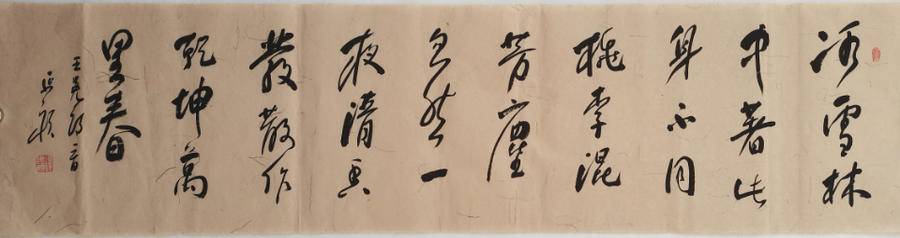 冰雪林
中著此
身不同
桃李混
芳塵
忽然一
夜清香
發散作
乾坤萬
里春
王冕詩一首